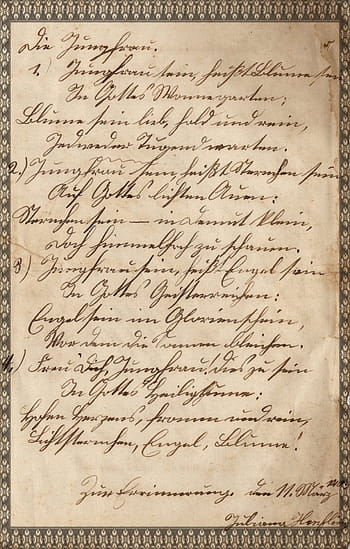 Die Jungfrau.
1.) Jungfrau sein, heißt Blume sein
In Gottes Wonnegarten,
Blume sein lieb, hold und rein,
Jedweder Tugend warten.
2.) Jungfrau sein heißt Sternchen sein
Auf Gottes lichten Auen:
Sternchen sein – in Demut klein,
Doch himmelhoch zu schauen.
3) Jungfrau sein, heißt Engel sein
In Gottes Geisterreichen:
Engel sein im Glorienschein,
Vor dem die Sonnen bleichen.
4.) Freu' dich, Jungfrau! dies zu sein
In Gottes Heiligtume:
Hohen Herzens, fromm und rein,
Lichtsternchen, Engel, Blume!
Zur Erinnerung. den 11. März
Juliana